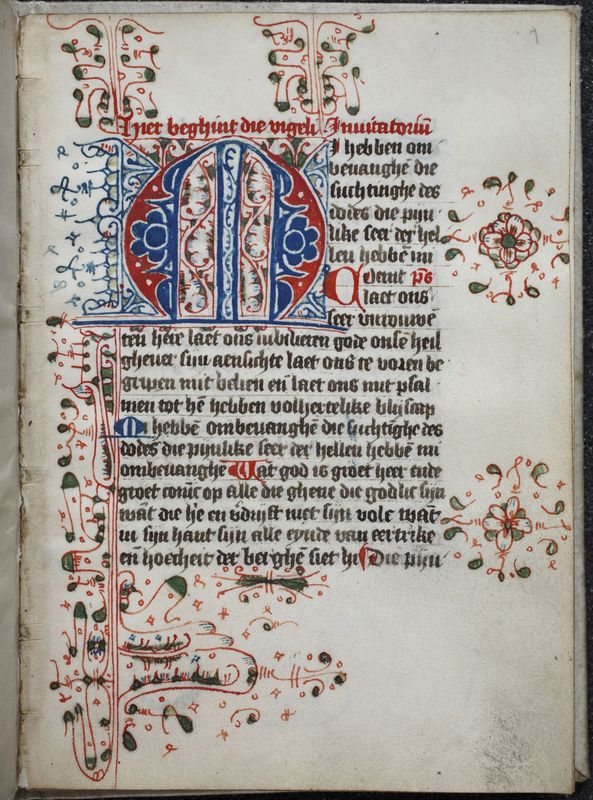 Hier beghint die vigeli Inuitatoriū
M I hebben om
beuanghē die
suchtinghe des
dodes die pijn
like seer der hel
len hebbē mi
Venit ps
laet ons
seer vurouwē
ten here laet ons iubilieren gode onsē heil
gheuer sijn aensichte laet ons te voren be
gripen mit belien eñ laet ons mit psal
men tot hē hebben volhertelike blijscap
Mi hebbē ombeuanghē die suchtighe des
dodes die pijnlike seer der hellen hebbē mi
ombeuanghē Wāt god is groet heer ende
groet conīc op alle die ghene die godlic sijn
wāt die he en vdrijft niet sijn volc wāt
in sijn hant sijn alle eynde van eertrike
eñ hoecheit der berghē siet hi Die pijn